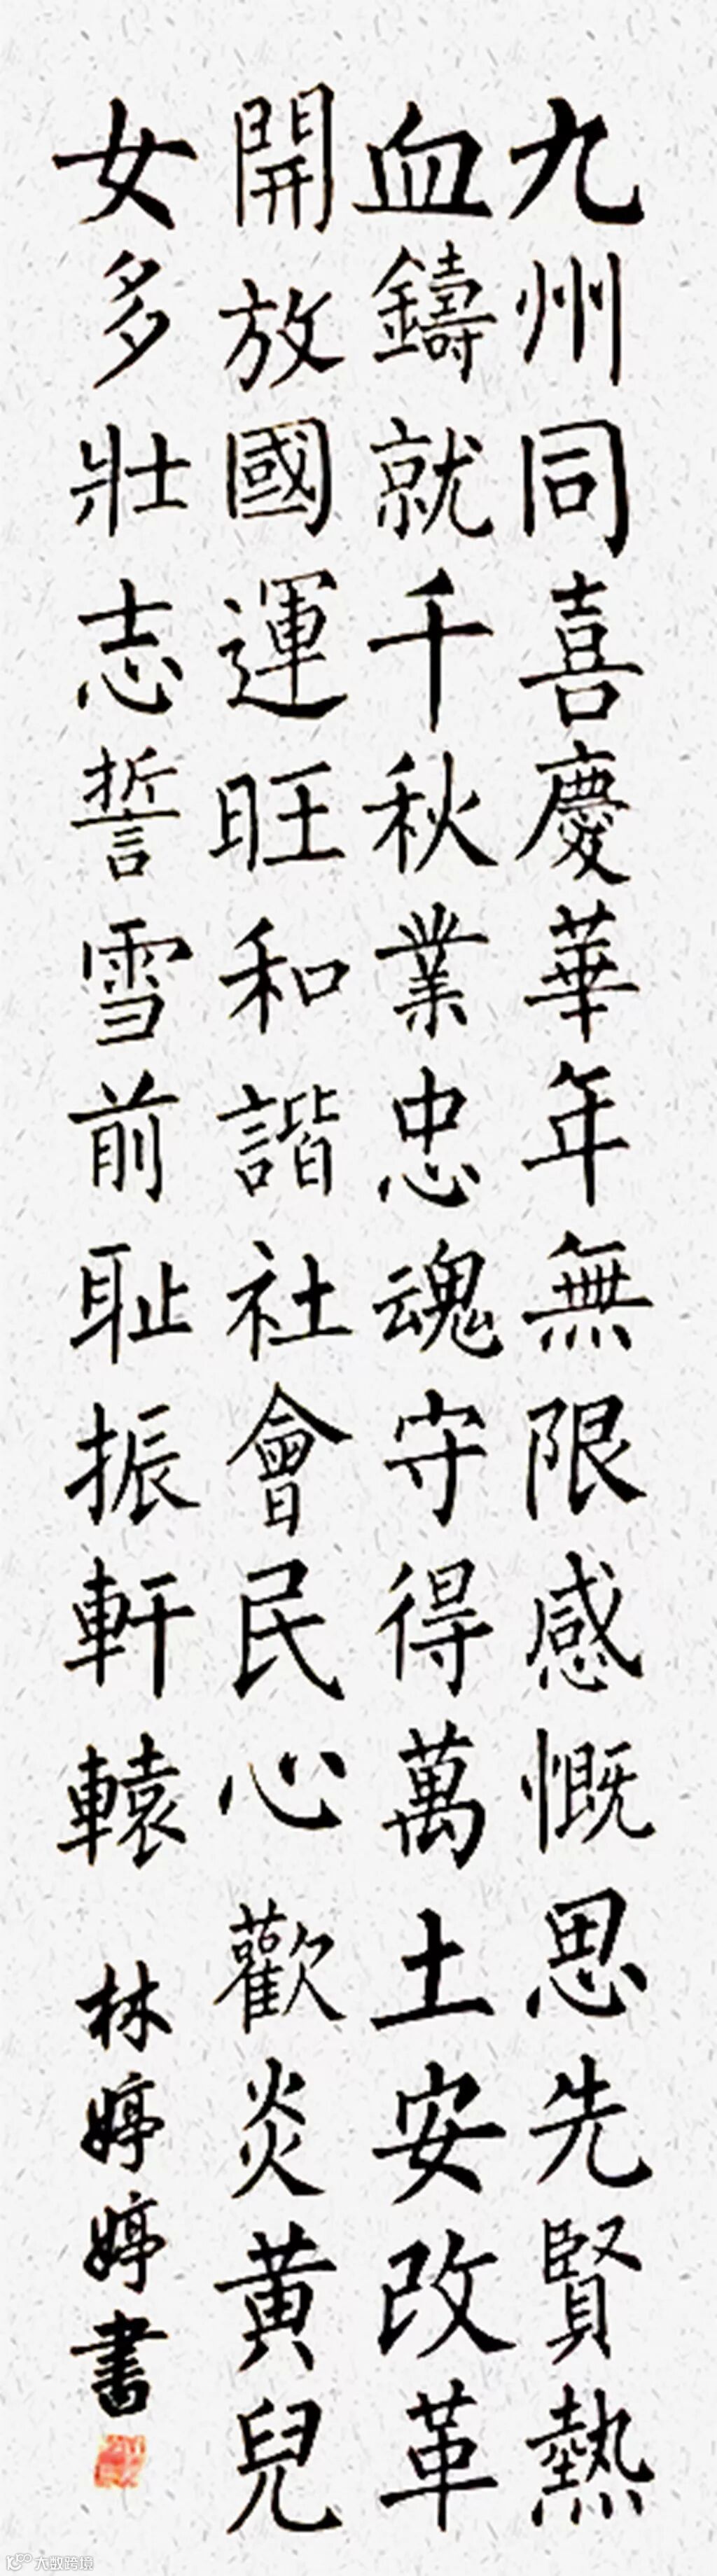 九州同喜慶華年無限感慨思先賢熱
血鑄就千秋業忠魂守得萬土安改革
開放國運旺和諧社會民心歡炎黃兒
女多壯志誓雪前耻振軒轅
林婷婷書
大數跨境